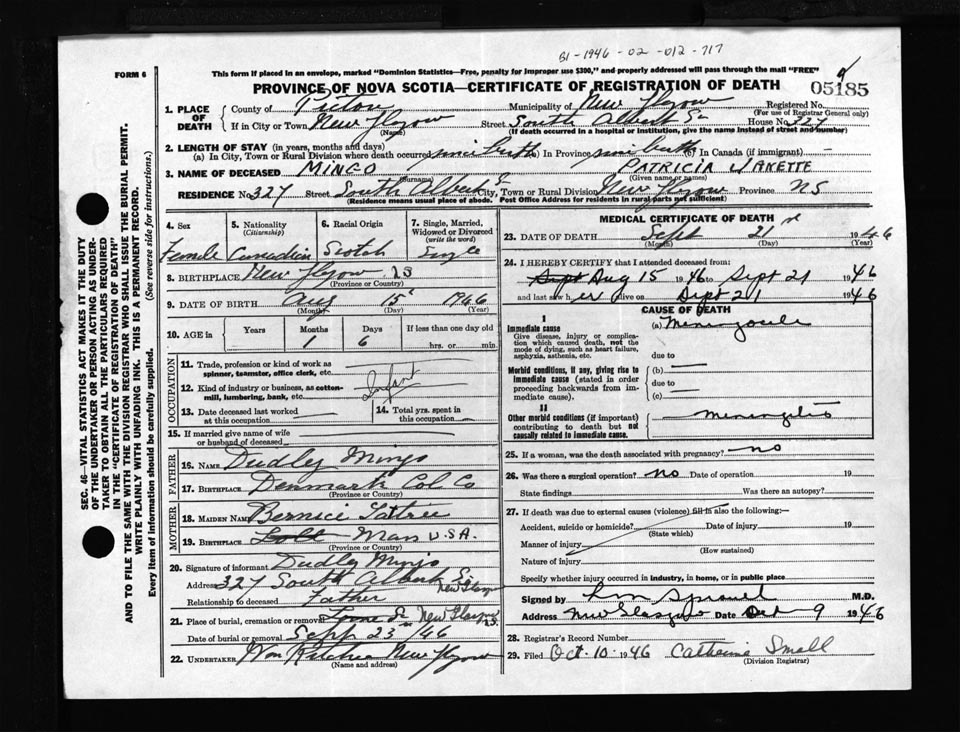 B1-1946-02-012-717
FORM 6
This form if placed in an envelope, marked "Dominion Statistics—Free, penalty for improper use $300," and properly addressed will pass through the mail "FREE"
PROVINCE OF NOVA SCOTIA—CERTIFICATE OF REGISTRATION OF DEATH
05185
1. PLACE OF DEATH
County of Pictou Municipality of New Glasgow Registered No.
(For use of Registrar General only)
If in City or Town New Glasgow Street South Albert St House No. 327
(Name) (If death occurred in a hospital or institution, give the name instead of street and number)
2. LENGTH OF STAY (in years, months and days)
(a) In City, Town or Rural Division where death occurred since birth (b) In Province since birth (c) In Canada (if immigrant) —
3. NAME OF DECEASED MINGO PATRICIA JANETTE
(Surname) (Given name or names)
RESIDENCE No. 327 Street South Albert St City, Town or Rural Division New Glasgow Province NS
(Residence means usual place of abode. Post Office Address for residents in rural parts not sufficient)
4. Sex
Female
5. Nationality
(Citizenship)
Canadian
6. Racial Origin
Scotch
7. Single, Married, Widowed or Divorced
(write the word)
Single
8. BIRTHPLACE New Glasgow
(Province or Country)
9. DATE OF BIRTH Aug 15 1946
(Month) (Day) (Year)
10. AGE in Years Months Days If less than one day old
1 6 hrs. or min.
OCCUPATION
11. Trade, profession or kind of work as spinner, teamster, office clerk, etc.
12. Kind of industry or business, as cotton-mill, lumbering, bank, etc.
Infant
13. Date deceased last worked at this occupation
14. Total yrs. spent in this occupation
15. If married give name of wife or husband of deceased
FATHER
16. Name Dudly Mingo
17. Birthplace Denmark Col Co
(Province or Country)
MOTHER
18. Maiden Name Bernice Tattrie
19. Birthplace Mass U.S.A.
(Province or Country)
20. Signature of informant Dudly Mingo
Address 327 South Albert St New Glasgow
Relationship to deceased Father
21. Place of burial, cremation or removal New Glasgow
Date of burial or removal Sept 23/46
22. UNDERTAKER Wm Ritchie New Glasgow
(Name and address)
MEDICAL CERTIFICATE OF DEATH
23. DATE OF DEATH Sept 21 1946
(Month) (Day) (Year)
24. I HEREBY CERTIFY that I attended deceased from:
Sept Aug 15 1946 to Sept 21 1946
and last saw her alive on Sept 21 1946
CAUSE OF DEATH
I
Immediate cause
Give disease, injury or complication which caused death, not the mode of dying, such as heart failure, asphyxia, asthenia, etc.
(a) Meningocele
due to
Morbid conditions, if any, giving rise to immediate cause (stated in order proceeding backwards from immediate cause).
(b)
due to
(c)
II
Other morbid conditions (if important) contributing to death but not causally related to immediate cause.
Meningitis
25. If a woman, was the death associated with pregnancy? no
26. Was there a surgical operation? no Date of operation 19
State findings Was there an autopsy?
27. If death was due to external causes (violence) fill in also the following:—
Accident, suicide or homicide? Date of injury 19
(State which)
Manner of injury
(How sustained)
Nature of injury
Specify whether injury occurred in industry, in home, or in public place
Signed by M.D.
Address New Glasgow Date Oct 9 1946
28. Registrar's Record Number
29. Filed Oct. 10 1946 Catherine Small
(Division Registrar)
SEC. 46—VITAL STATISTICS ACT MAKES IT THE DUTY
OF THE UNDERTAKER OR PERSON ACTING AS UNDER-
TAKER TO OBTAIN ALL THE PARTICULARS REQUIRED
IN THE "CERTIFICATE OF REGISTRATION OF DEATH"
AND TO FILE THE SAME WITH THE DIVISION REGISTRAR WHO SHALL ISSUE THE BURIAL PERMIT.
WRITE PLAINLY WITH UNFADING INK. THIS IS A PERMANENT RECORD.
Every item of information should be carefully supplied. (See reverse side for instructions.)